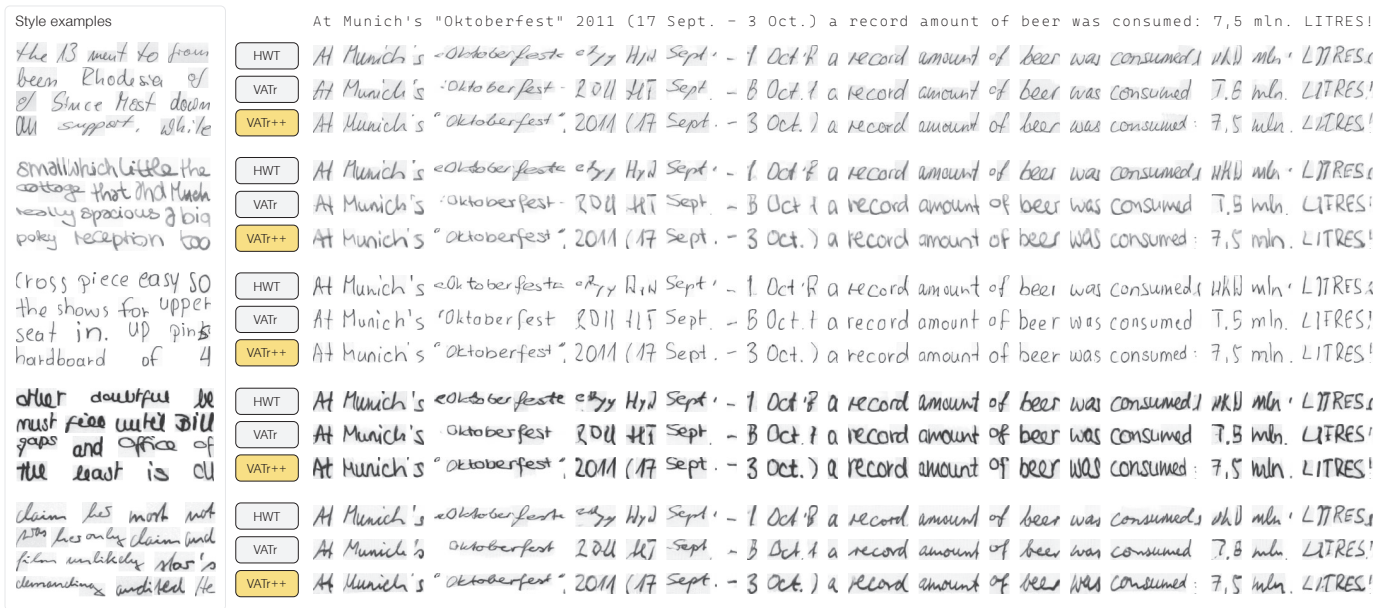 Style examples
At Munich's "Oktoberfest" 2011 (17 Sept. – 3 Oct.) a record amount of beer was consumed: 7,5 mln. LITRES!
the 13 ment to from
been Rhodesia of
of Since Most down
all support. while
HWT At Munich's Sept. - 1 Oct a record amount of beer was consumed mln.
VATr At Munich's Oktoberfest - 2011 Sept. - B Oct. a record amount of beer was consumed mln. LITRES!
VATr++ At Munich's "Oktoberfest", 2011 (17 Sept. - 3 Oct.) a record amount of beer was consumed: 7,5 mln. LITRES!
small which little the
cottage that and Much
really spacious a big
poky reception too
HWT At Munich's Sept. - 1 Oct a record amount of beer was consumed mln.
VATr At Munich's Oktoberfest - Sept - B Oct a record amount of beer was consumed mln. LITRES!
VATr++ At Munich's "Oktoberfest", 2011 (17 Sept. - 3 Oct.) a record amount of beer was consumed: 7,5 mln. LITRES!
Cross piece easy SO
the shows for upper
seat in. UP pins
hardboard of 4
HWT At Munich's Sept - 1 Oct a record amount of beer was consumed mln.
VATr At Munich's Oktoberfest 2011 Sept. - B Oct. a record amount of beer was consumed mln.
VATr++ At Munich's "Oktoberfest", 2011 (17 Sept. - 3 Oct.) a record amount of beer was consumed: 7,5 mln. LITRES!
other doubtful be
must free until Bill
gaps and Office of
the least is all
HWT At Munich's Sept. - 1 Oct a record amount of beer was consumed mln.
VATr At Munich's Oktoberfest Sept - B Oct. a record amount of beer was consumed mln.
VATr++ At Munich's "Oktoberfest", 2011 (17 Sept. - 3 Oct.) a record amount of beer was consumed: 7,5 mln. LITRES!
claim her most not
was her only claim and
film unlikely star's
demanding audited He
HWT At Munich's Sept. - 1 Oct a record amount of beer was consumed mln.
VATr At Munich's Oktoberfest Sept. - B Oct. a record amount of beer was consumed mln. LITRES!
VATr++ At Munich's "Oktoberfest", 2011 (17 Sept. - 3 Oct.) a record amount of beer was consumed: 7,5 mln. LITRES!